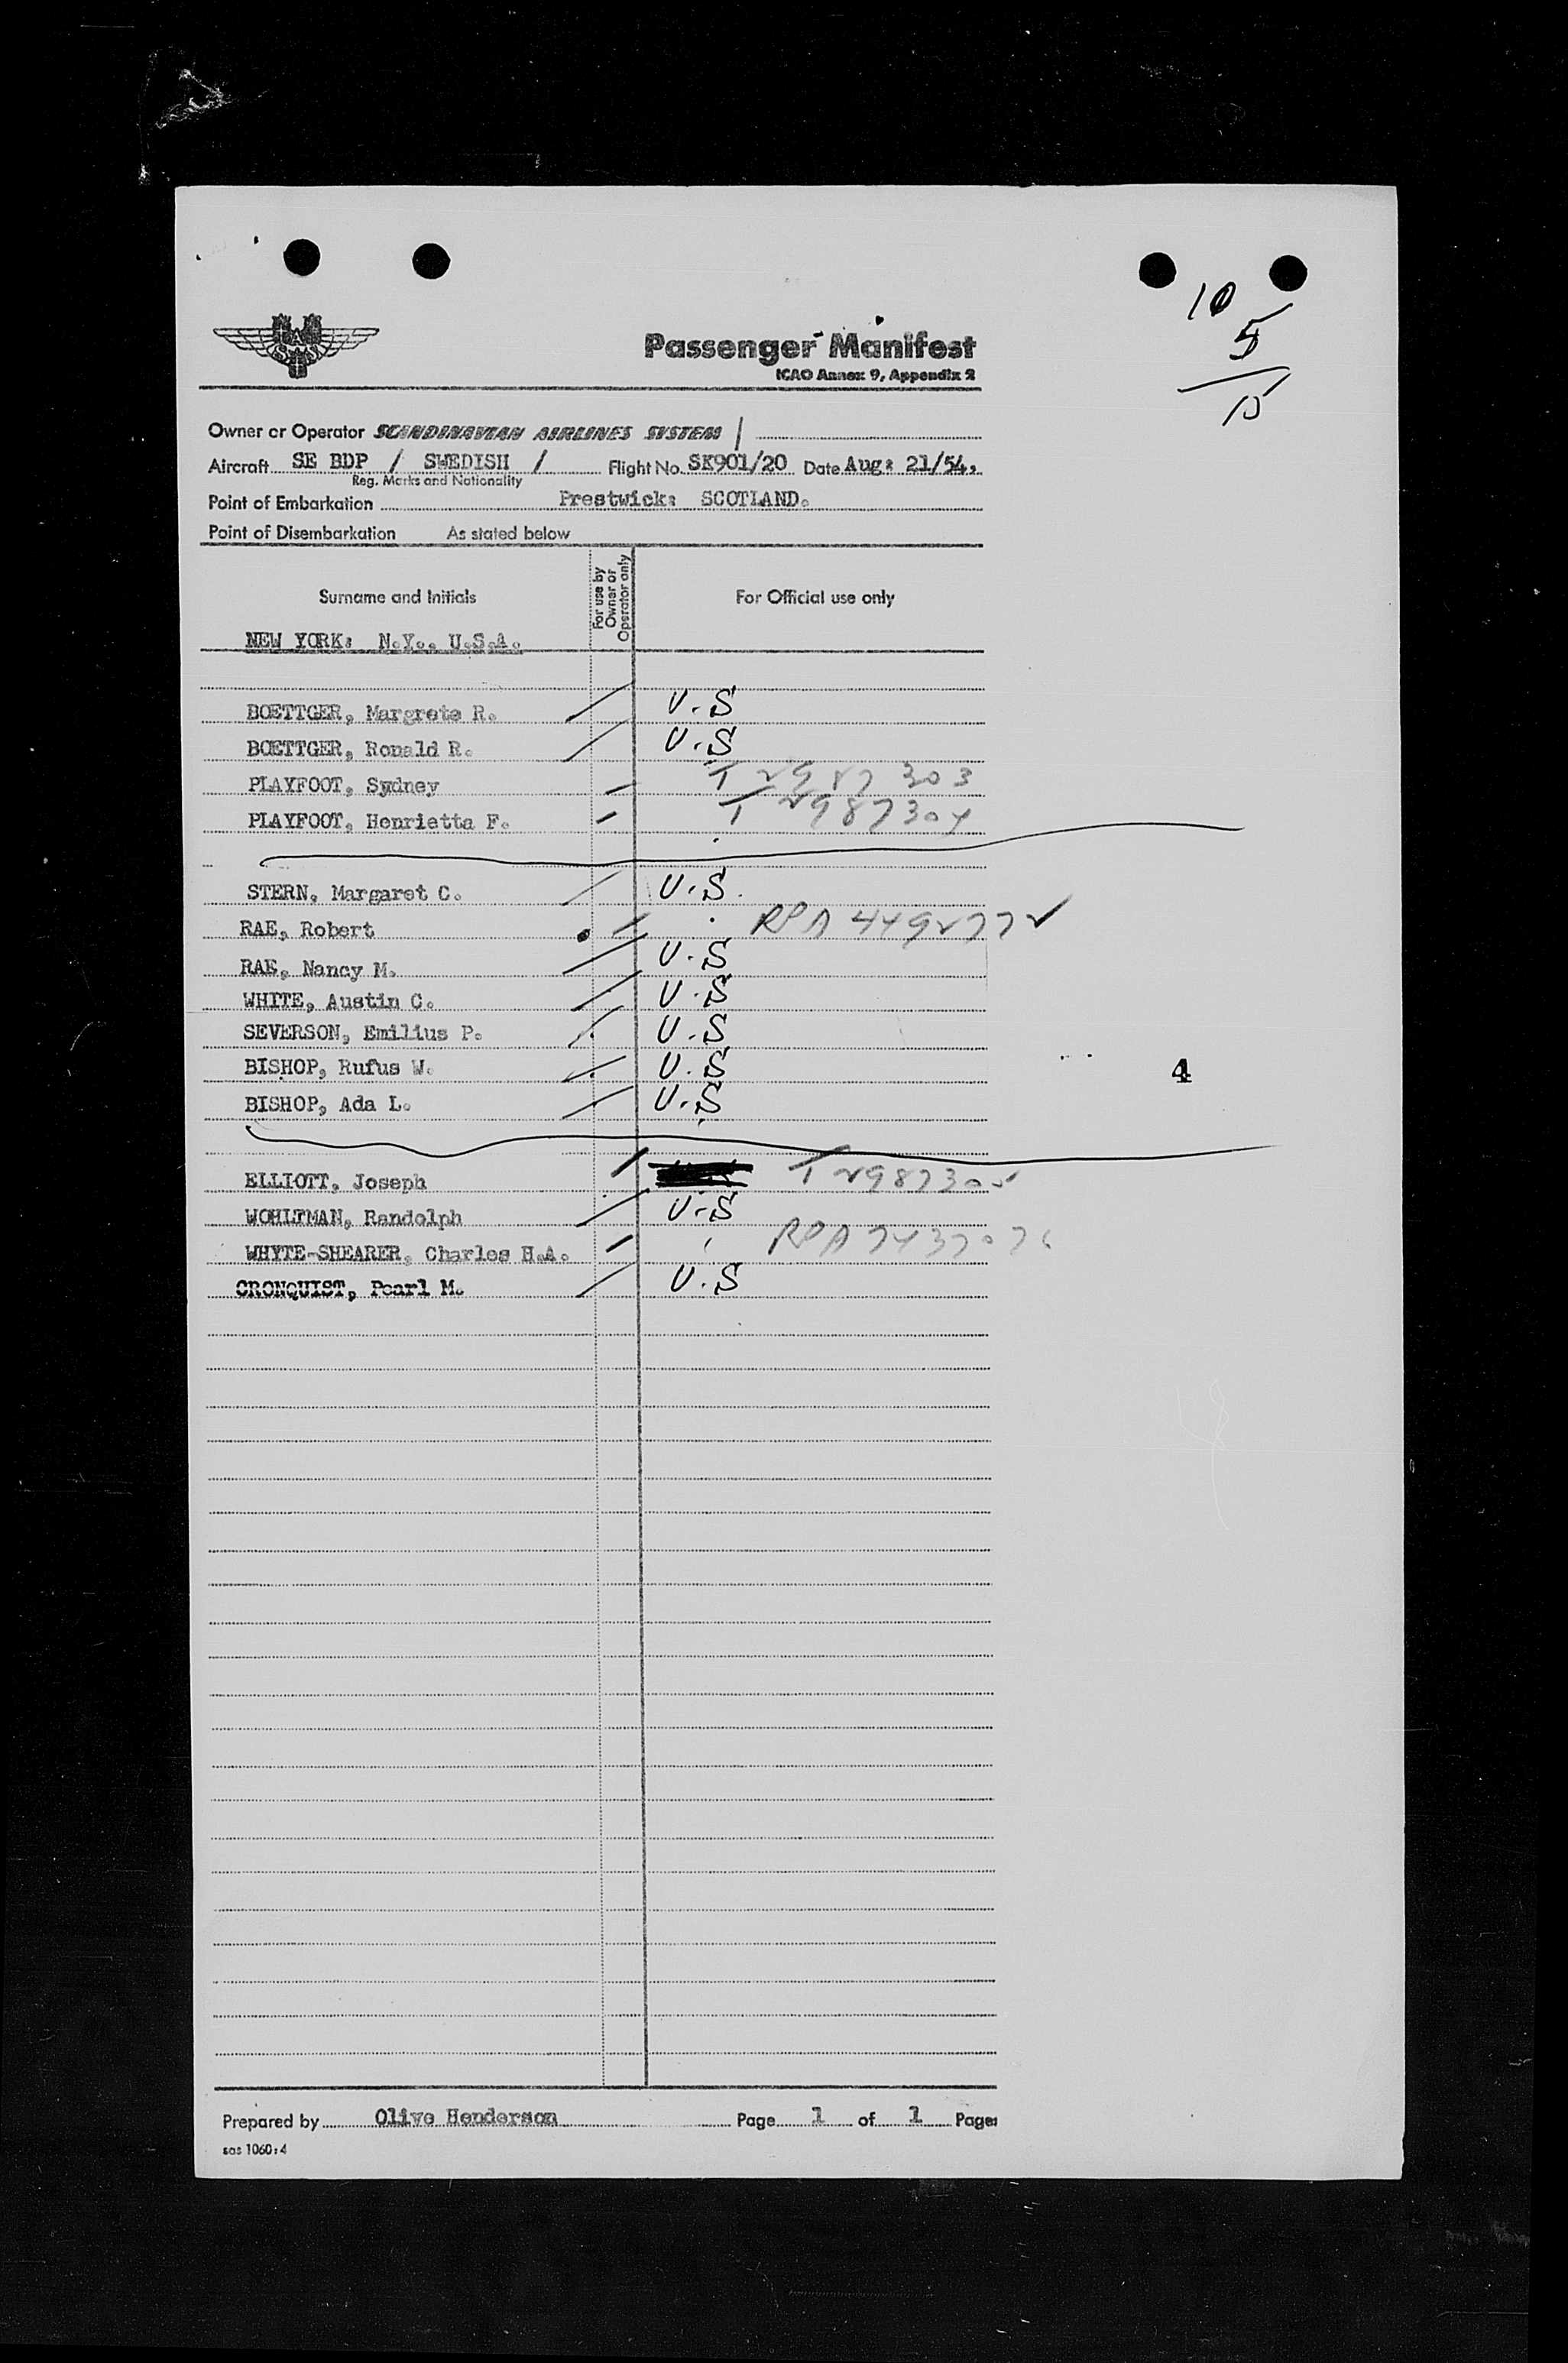 10
5
15
SAS
Passenger Manifest
ICAO Annex 9, Appendix 2
Owner or Operator SCANDINAVIAN AIRLINES SYSTEM
Aircraft SE BDP / SWEDISH / Flight No. SK901/20 Date Aug: 21/54,
Reg. Marks and Nationality
Point of Embarkation Prestwick: SCOTLAND.
Point of Disembarkation As stated below
Surname and Initials For use by Owner or Operator only For Official use only
NEW YORK: N.Y., U.S.A.
BOETTGER, Margrete R. U.S
BOETTGER, Ronald R. U.S
PLAYFOOT, Sydney T 2987303
PLAYFOOT, Henrietta F. T 2987304
STERN, Margaret C. U.S.
RAE, Robert RPA 4492772
RAE, Nancy M. U.S
WHITE, Austin C. U.S
SEVERSON, Emilius P. U.S
BISHOP, Rufus W. U.S
4
BISHOP, Ada L. U.S
ELLIOTT, Joseph T 2987305
WOHLTMAN, Randolph U.S
WHYTE-SHEARER, Charles H.A. RPA
CRONQUIST, Pearl M. U.S
Prepared by Olive Henderson Page 1 of 1 Pages
sas 1060:4